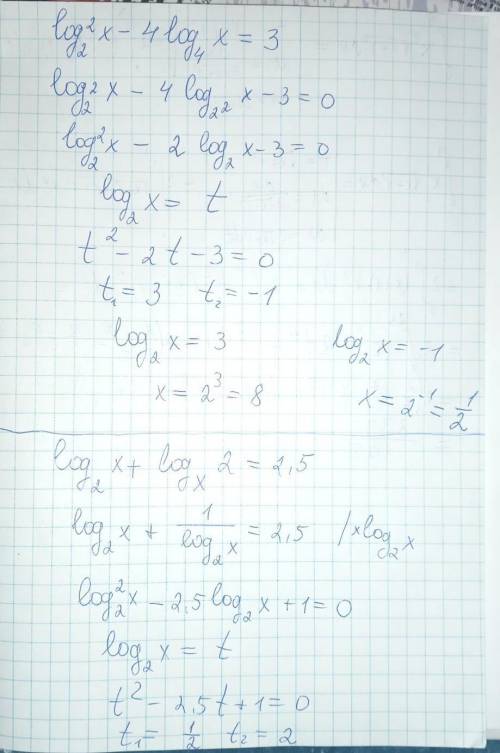 log₂²x - 4 log₄ x = 3
log₂²x - 4 log_{2²} x - 3 = 0
log₂²x - 2 log₂ x - 3 = 0
log₂ x = t
t² - 2t - 3 = 0
t₁ = 3 t₂ = -1
log₂ x = 3 log₂ x = -1
x = 2³ = 8 x = 2⁻¹ = 1/2
log₂ x + logₓ 2 = 2,5
log₂ x + 1/log₂ x = 2,5 /×log₂ x
log₂²x - 2,5 log₂ x + 1 = 0
log₂ x = t
t² - 2,5t + 1 = 0
t₁ = 1/2 t₂ = 2